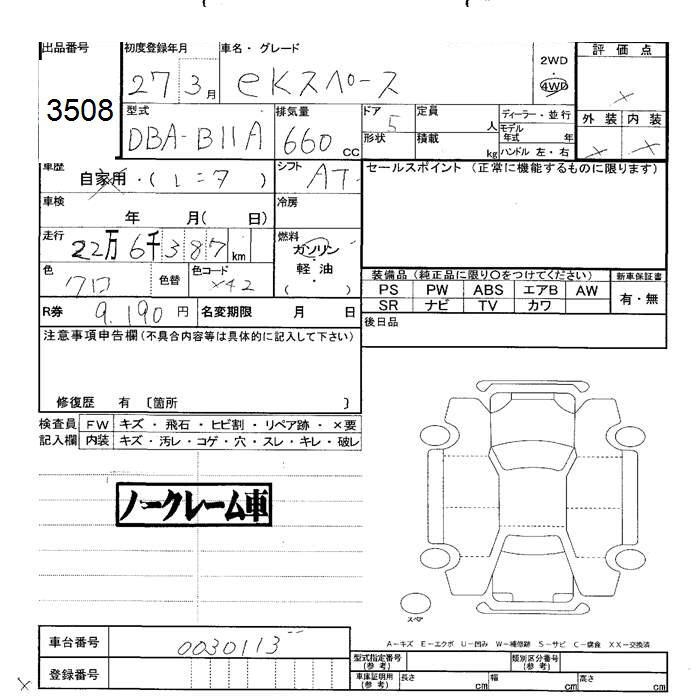 出品番号 初度登録年月 車名・グレード 評価点
3508 27 3月 eKスペース 2WD 4WD ×
型式 排気量 ドア 定員 ディーラー・並行 外装 内装
DBA-B11A 660 CC 5 人 モデル年式 年 × ×
形状 積載 kg ハンドル 左・右
車歴 自家用・(レニア) シフト AT セールスポイント (正常に機能するものに限ります)
車検 年 月( 日) 冷房
走行 22万6千387km 燃料 ガソリン
軽油
( )
色 クロ 色替 色コード X42 装備品 (純正品に限り〇をつけてください) 新車保証書
PS PW ABS エアB AW 有・無
SR ナビ TV カワ
R券 9,190円 名変期限 月 日 後日品
注意事項申告欄(不具合内容等は具体的に記入して下さい)
修復歴 有 〔箇所 〕
検査員 FW キズ・飛石・ヒビ割・リペア跡・×要
記入欄 内装 キズ・汚レ・コゲ・穴・スレ・キレ・破レ
ノークレーム車
スペア
A-キズ E-エクボ U-凹み W-補修跡 S-サビ C-腐食 XX-交換済
車台番号 0030113
型式指定番号(参考) 類別区分番号(参考)
登録番号 車庫証明用(参考) 長さ cm 幅 cm 高さ cm
×